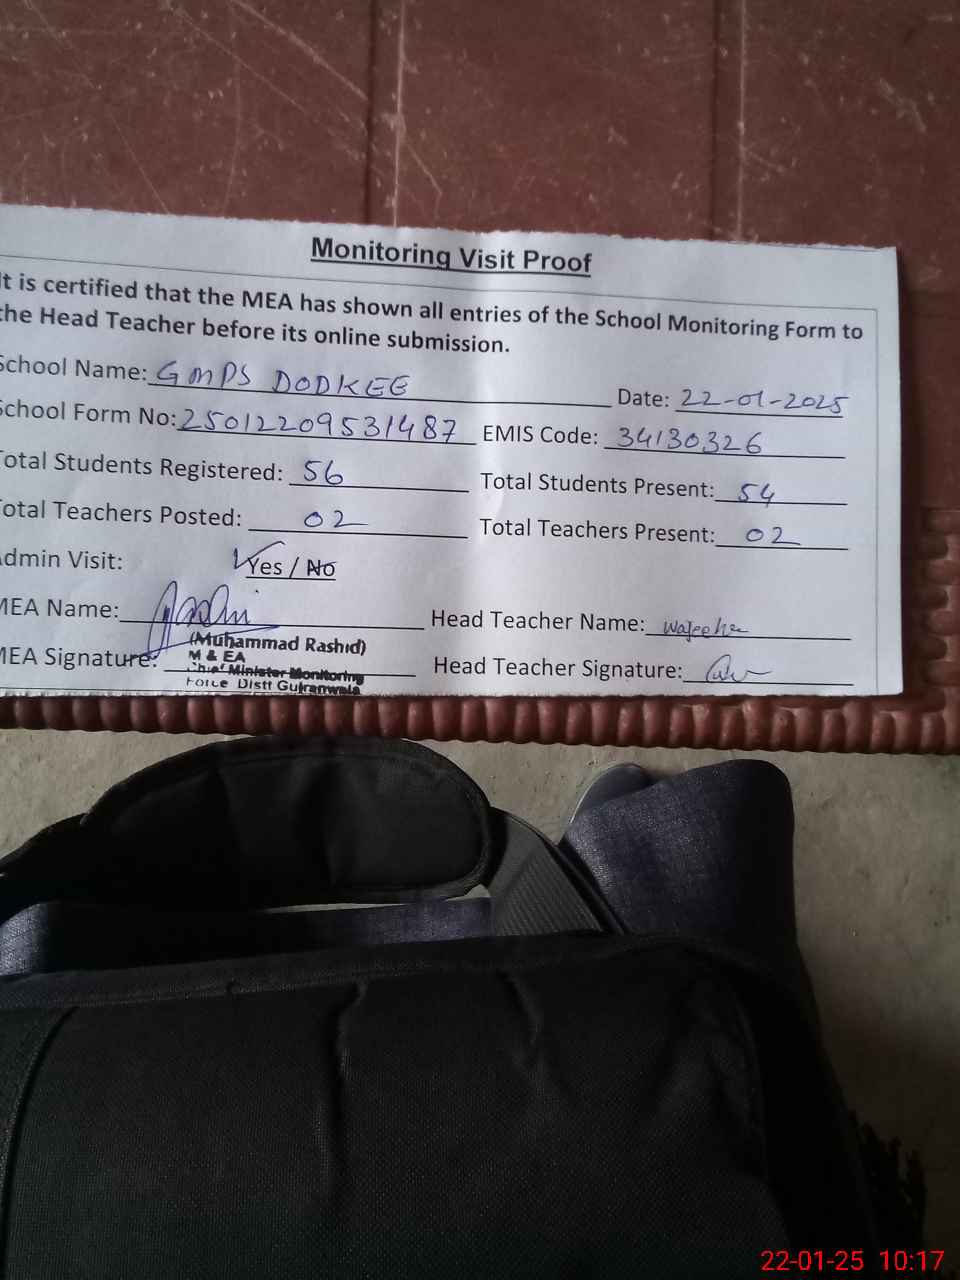 Monitoring Visit Proof
It is certified that the MEA has shown all entries of the School Monitoring Form to
the Head Teacher before its online submission.
School Name: GMPS DODKEE Date: 22-01-2025
School Form No: 25012209531487 EMIS Code: 34130326
Total Students Registered: 56 Total Students Present: 54
Total Teachers Posted: 02 Total Teachers Present: 02
Admin Visit: Yes / No
MEA Name: Head Teacher Name: Wajeeha
(Muhammad Rashid)
MEA Signature: Head Teacher Signature:
M & EA
Chief Minister Monitoring
Force Distt Gujranwala
22-01-25 10:17